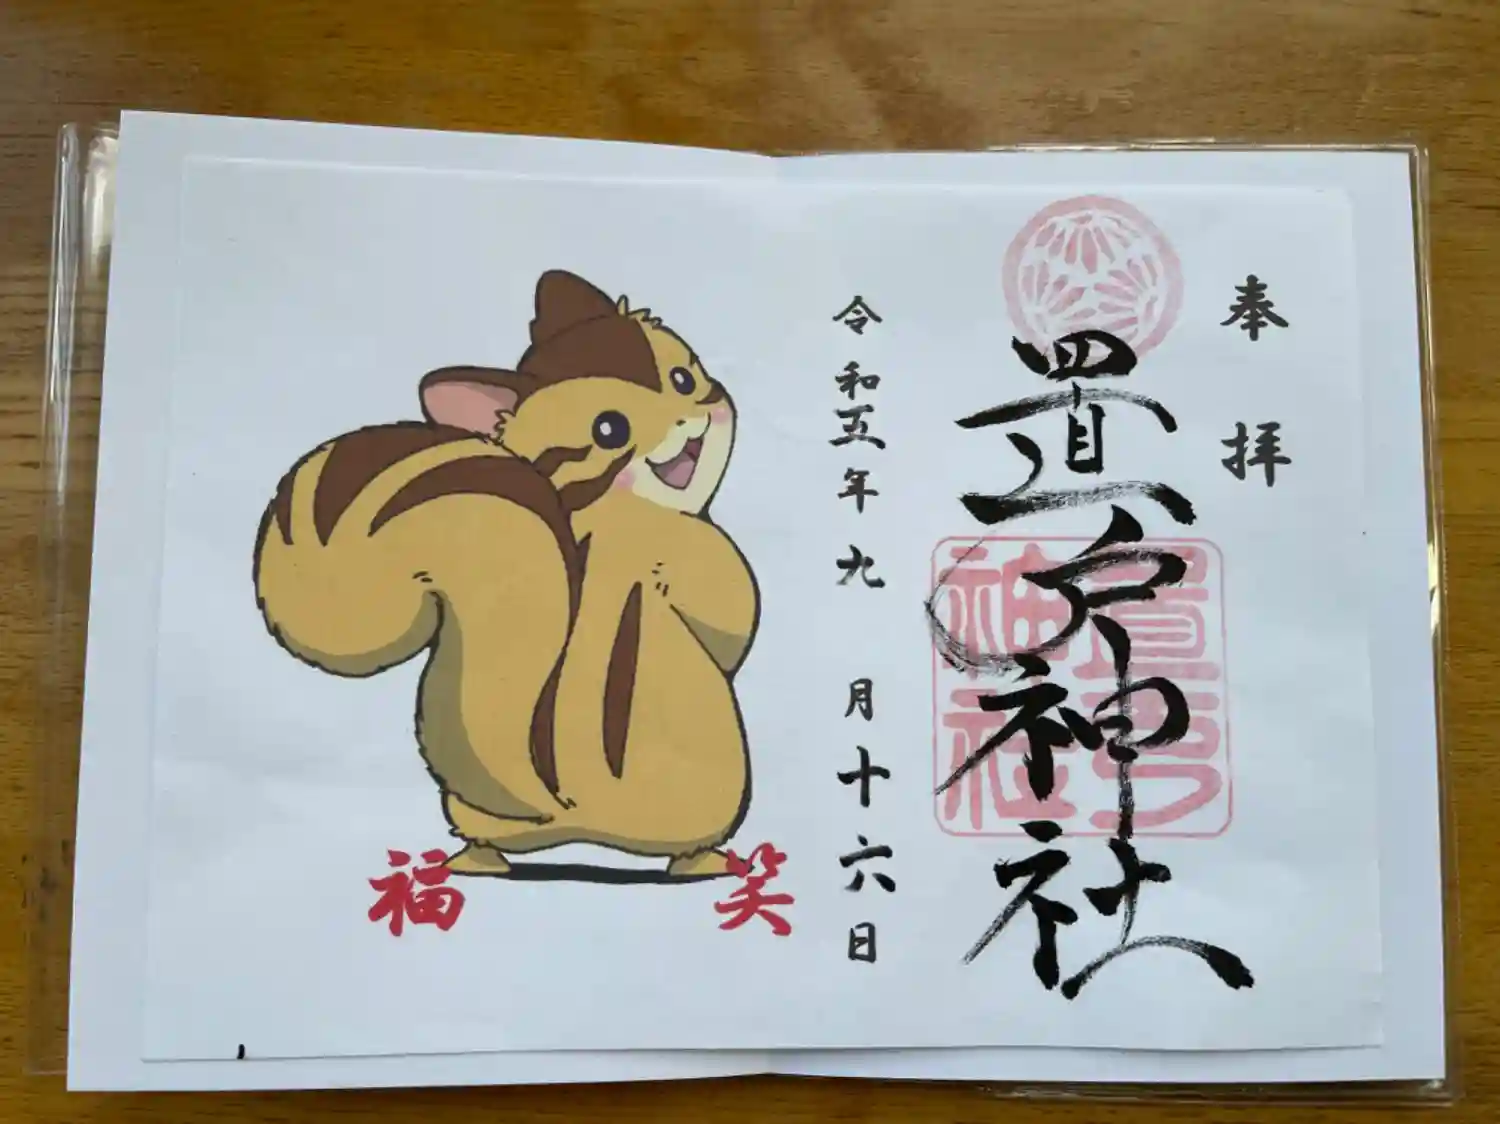 奉拝
置戸神社
置戸
神社
令和五年九月十六日
笑福